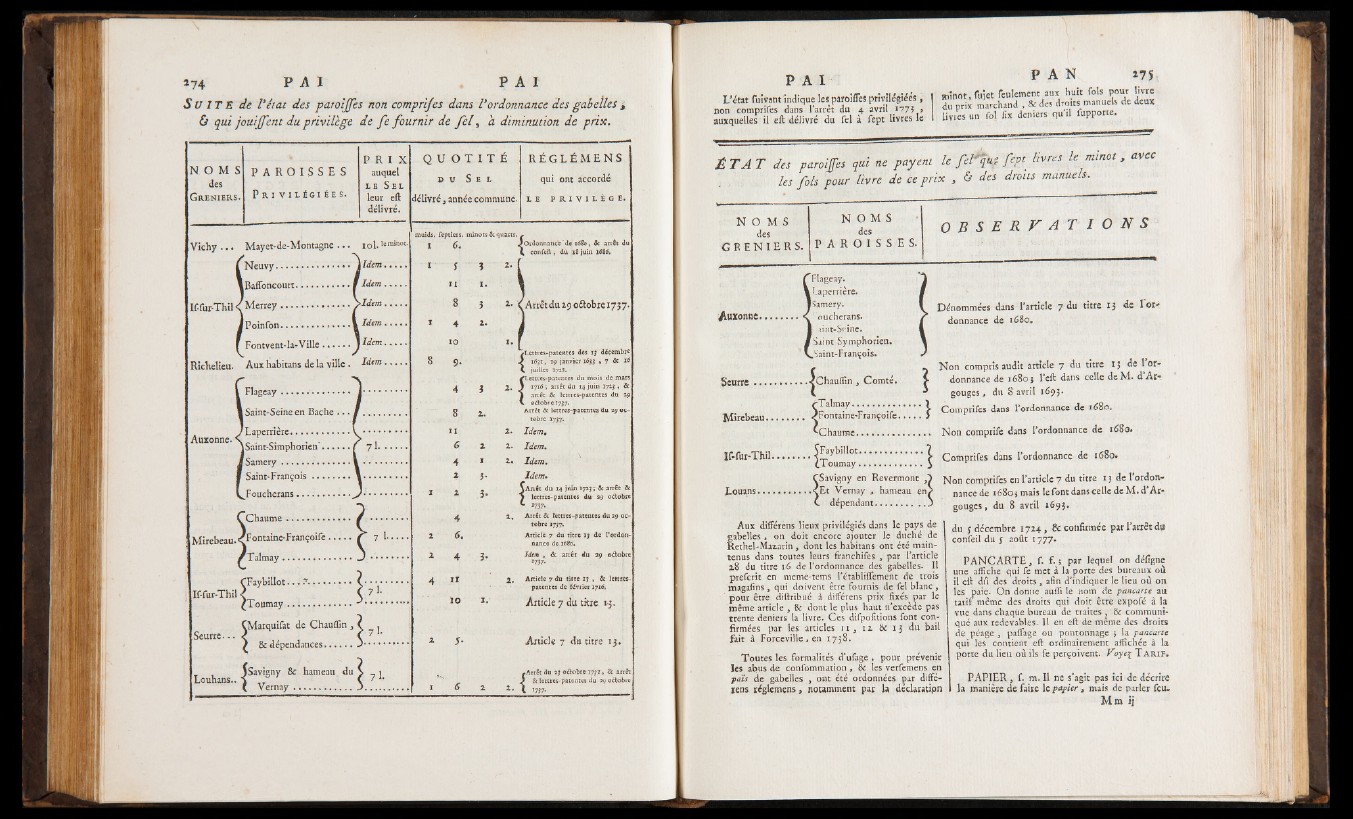 274 PAI PAI
SUITE de l'état des paroisses non comprises dans l'ordonnance des gabelles,
& qui jouissent du privilège de se fournir de sel, à diminution de prix.
NOMS des GRENIERS.
PAROISSES PRIVILÉGIÉES.
PRIX auquel LE SEL leur est délivré.
QUOTITÉ DU SEL délivré, année commune.
RÉGLÉMENS qui ont accordé LE PRIVILÈGE.
muids. septiers. minots & quarts.
Vichy... Mayet-de-Montagne... 10 l. le minot. 1 6. Ordonnance de 1680, & arrêt du conseil, du 18 juin 1686.
Is-sur-Thil
Neuvy.............. Idem..... 1 5 3 2.
Bassoncourt........... Idem..... 11 1.
Merrey............. Idem..... 8 3 2. Arrêt du 29 octobre 1737.
Poinson............. Idem..... 1 4 2.
Fontvent-la-Ville...... Idem..... 10 1.
Richelieu. Aux habitans de la ville. Idem..... 8 9. Lettres-patentes des 13 décembre 1631, 19 janvier 1633, 7 & 16 juillet 1722.
Auxonne. 7 l.
Flageay............. 4 3 2. Lettres-patentes du mois de mars 1716; arrêt du 14 juin 1723, & arrêt & lettres-patentes du 29 octobre 1737.
Saint-Seine en Bache... 8 2. Arrêt & lettres-patentes du 29 octobre 1737.
Laperrière............ 11 2. Idem.
Saint-Simphorien...... 6 2 2. Idem.
Samery............. 4 1 2. Idem.
Saint-François........ 2 3. Idem.
Foucherans........... 1 2 3. Arrêt du 14 juin 1723; & arrêt & lettres-patentes du 29 octobre 1737.
Mirebeau. 7 l.
Chaume............. 4 2. Arrêt & lettres-patentes du 29 octobre 1737.
Fontaine-Françoise..... 2 6. Article 7 du titre 13 de l'ordonnance de 1680.
Talmay............. 2 4 3. Idem, & arrêt du 29 octobre 1737.
Is-sur-Thil 7 l.
Faybillot............ 4 11 2. Article 7 du titre 13, & lettres-patentes de février 1716.
Toumay............. 10 1. Article 7 du titre 13.
Seurre... Marquisat de Chaussin, & dépendances...... 7 l. 2 5. Article 7 du titre 13.
Louhans.. Savigny & hameau du Vernay............ 7 l. 1 6 2 2. Arrêt du 23 octobre 1772, & arrêt & lettres-patentes du 29 octobre 1737.
PAI PAN 275
L'état suivant indique les paroisses privilégiées,
non comprises dans l'arrêt du 4 avril 1773,
auxquelles il est délivré du sel à sept livres le
minot, sujet seulement aux huit sols pour livre
du prix marchand, & des droits manuels de deux
livres un sol six deniers qu'il supporte.
ÉTAT des paroisses qui ne payent le sel que sept livres le minot, avec
les sols pour livre de ce prix, & des droits manuels.
NOMS des GRENIERS.
NOMS des PAROISSES.
OBSERVATIONS
Auxonne........
Flageay.
Laperrière.
Samery.
oucherans.
aint-Seine.
Saint Symphorien.
Saint-François.
Dénommées dans l'article 7 du titre 13 de l'ordonnance
de 1680.
Seurre.......... Chaussin, Comté.
Non compris audit article 7 du titre 13 de l'ordonnance
de 1680; l'est dans celle de M. d'Argouges,
du 8 avril 1693.
Mirebeau.......
Talmay...............
Fontaine-Françoise.....
Comprises dans l'ordonnance de 1680.
Chaume............... Non comprise dans l'ordonnance de 1680.
Is-sur-Thil........
Faybillot.............
Toumay.............
Comprises dans l'ordonnance de 1680.
Louans..........
Savigny en Revermont,
Et Vernay, hameau en
dépendant...........
Non comprises en l'article 7 du titre 13 de l'ordonnance
de 1680; mais le sont dans celle de M. d'Argouges,
du 8 avril 1693.
Aux différens lieux privilégiés dans le pays de
gabelles, on doit encore ajouter le duché de
Rethel-Mazarin, dont les habitans ont été maintenus
dans toutes leurs franchises, par l'article
28 du titre 16 de l'ordonnance des gabelles. Il
prescrit en meme-tems l'établissement de trois
magasins, qui doivent être fournis de sel blanc,
pour être distribué à différens prix fixés par le
même article, & dont le plus haut n'excède pas
trente deniers la livre. Ces dispositions sont confirmées
par les articles 11, 12 & 13 du bail
fait à Forceville, en 1738.
Toutes les formalités d'usage, pour prévenir
les abus de consommation, & les versemens en
païs de gabelles, ont été ordonnées par différens
réglemens, notamment par la déclaration
du 5 décembre 1724, & confirmée par l'arrêt du
conseil du 5 août 1777.
PANCARTE, f. f.; par lequel on désigne
une affiche qui se met à la porte des bureaux où
il est dû des droits, afin d'indiquer le lieu où on
les paie. On donne aussi le nom de pancarte au
tarif même des droits qui doit être exposé à la
vue dans chaque bureau de traites, & communiqué
aux redevables. Il en est de même des droits
de péage, passage ou pontonnage; la pancarte
qui les contient est ordinairement affichée à la
porte du lieu où ils se perçoivent. Voyez TARIF.
PAPIER, f. m. Il ne s'agit pas ici de décrire
la manière de faire le papier, mais de parler seu-
M m ij